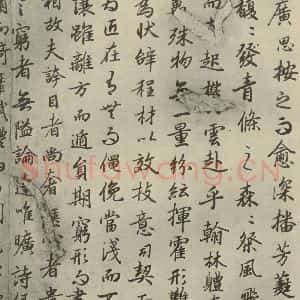 廣思按之而愈深播芳蕤
馥〻發青條之森〻粲風飛
而起雲赴乎翰林體
殊物無一量紛紜揮霍形難
為狀辭程材以效技意司契
為匠在有無而僶俛當淺而
讓雖離方而遁員期窮形而
相故夫誇目者尚奢者
窮者無隘論達唯曠詩
Shufawang.CN